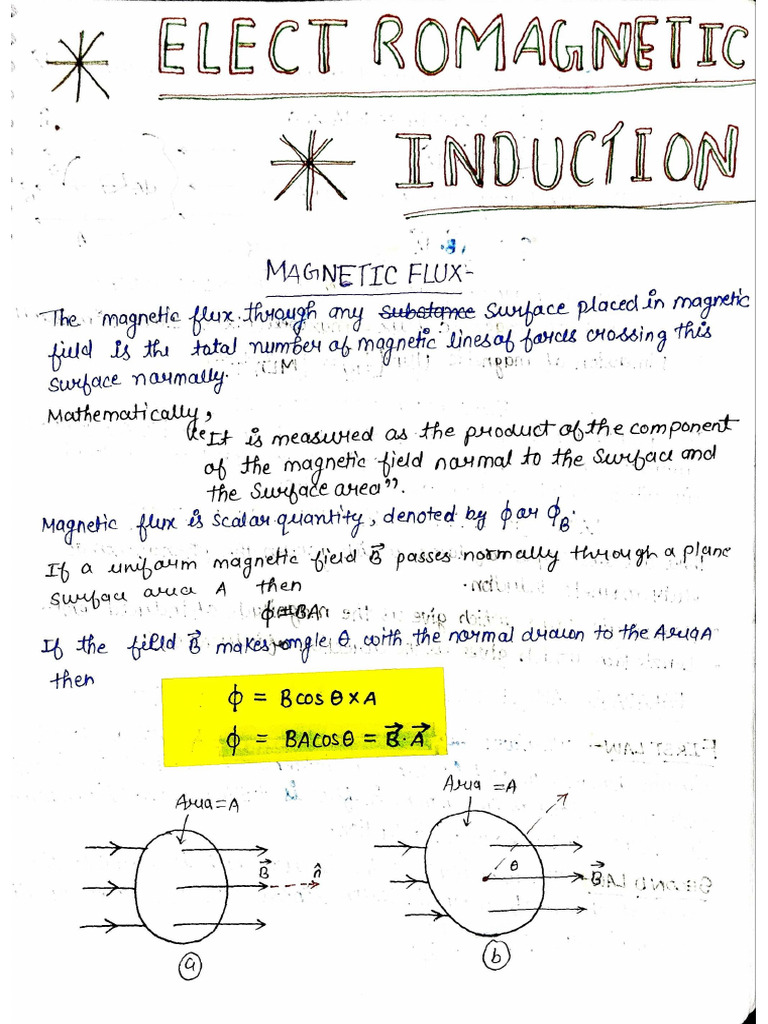 ELECTROMAGNETIC
INDUCTION
MAGNETIC FLUX-
The magnetic flux through any substance surface placed in magnetic
field is the total number of magnetic lines of forces crossing this
surface normally.
Mathematically,
"It is measured as the product of the component
of the magnetic field normal to the surface and
the surface area".
Magnetic flux is scalar quantity, denoted by ϕ or ϕ_B.
If a uniform magnetic field B⃗ passes normally through a plane
surface area A then
ϕ=BA
If the field B⃗ makes angle θ with the normal drawn to the Area A
then
ϕ = Bcosθ×A
ϕ = BAcosθ = B⃗·A⃗
Area=A
Area =A
B⃗
n̂
θ
B⃗
a
b
FIRST LAW-
SECOND LAW-